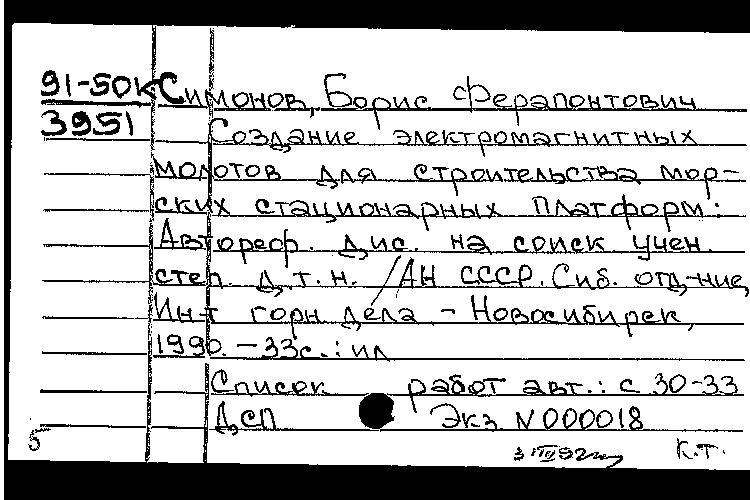 91-50к Симонов, Борис Ферапонтович
3951 Создание электромагнитных
молотов для строительства мор-
ских стационарных платформ:
Автореф. дис. на соиск учен.
степ. д.т.н. /АН СССР. Сиб. отд-ние,
Ин-т горн дела - Новосибирск,
1990. - 33с.: ил
Список работ авт.: с 30-33
ДСП Экз N 000018
5 К.Т.